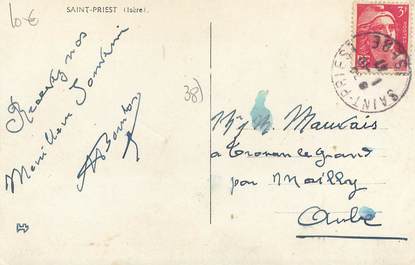 10€
SAINT-PRIEST (Isère).
3F
SAINT-PRIEST
ISERE
Recevez nos
Meilleurs Souvenirs
38)
Mauvais
a Trouan le Grand
par Mailly
Aube